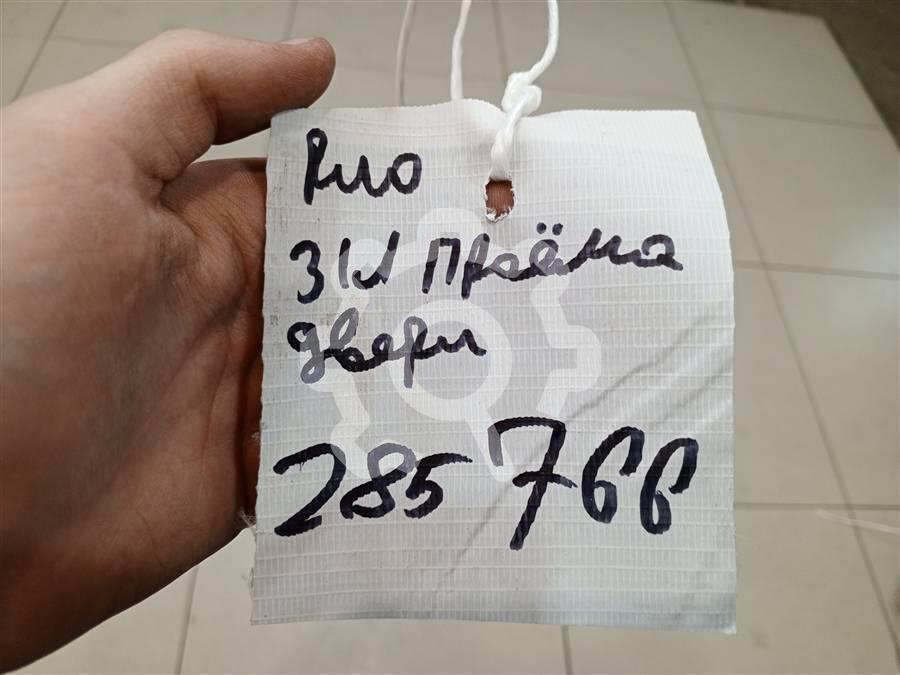 Рио
ЗЛ Проёма
двери
285766